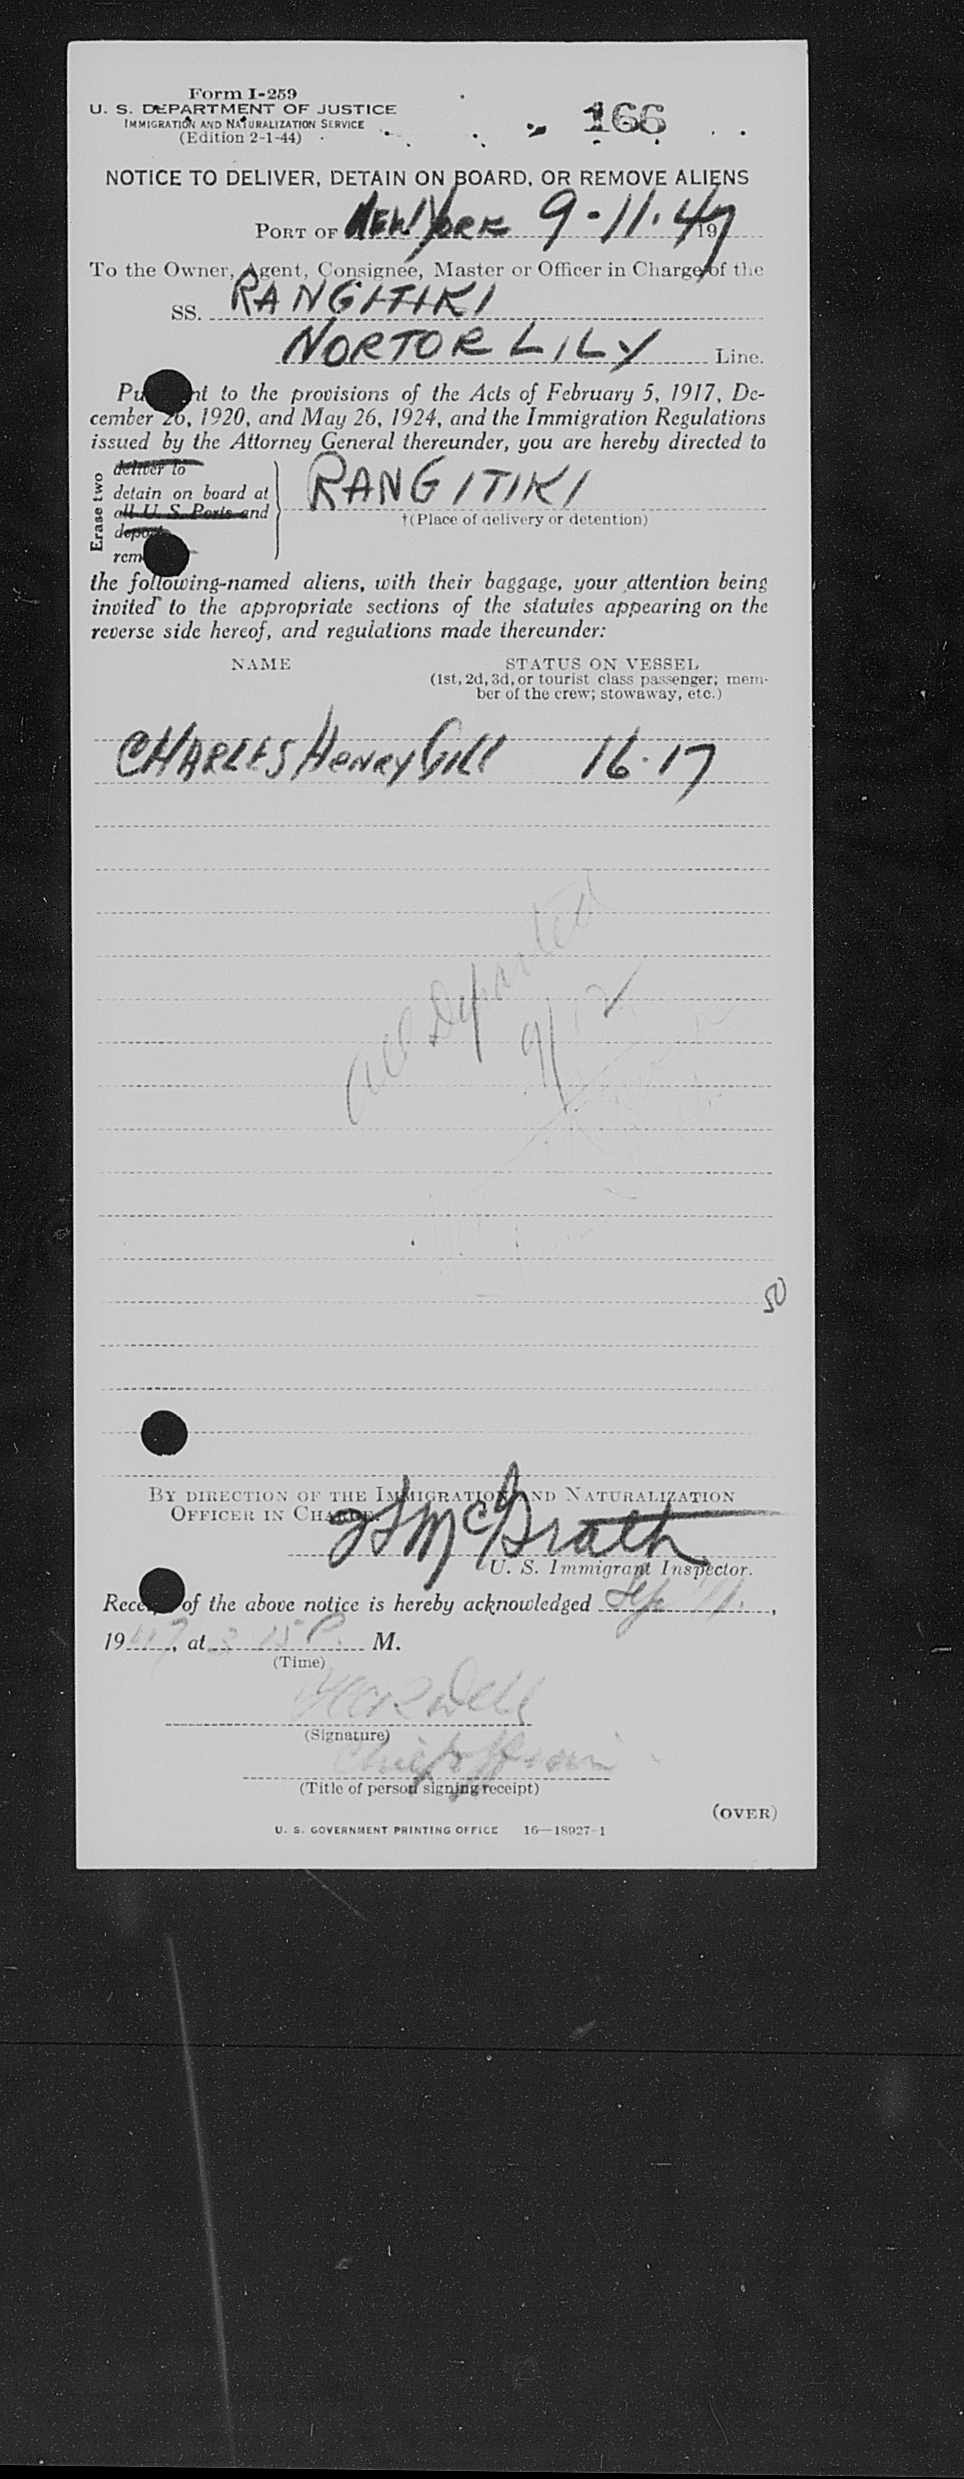 Form I-259
U. S. DEPARTMENT OF JUSTICE
IMMIGRATION AND NATURALIZATION SERVICE
(Edition 2-1-44)
166
NOTICE TO DELIVER, DETAIN ON BOARD, OR REMOVE ALIENS
PORT OF NEW YORK 9-11-47 19
To the Owner, Agent, Consignee, Master or Officer in Charge of the
SS. RANGITIKI
NORTOR LILY Line.
Pu nt to the provisions of the Acts of February 5, 1917, De-
cember 26, 1920, and May 26, 1924, and the Immigration Regulations
issued by the Attorney General thereunder, you are hereby directed to
Erase two
deliver to
detain on board at
all U. S. Ports and
deport
rem
RANGITIKI
†(Place of delivery or detention)
the following-named aliens, with their baggage, your attention being
invited to the appropriate sections of the statutes appearing on the
reverse side hereof, and regulations made thereunder:
NAME STATUS ON VESSEL
(1st, 2d, 3d, or tourist class passenger; mem-
ber of the crew; stowaway, etc.)
CHARLES Henry Gill 16-17
all Departed
9/12
50
BY DIRECTION OF THE IMMIGRATION AND NATURALIZATION
OFFICER IN CHARGE.
McGrath
U. S. Immigrant Inspector.
Rece of the above notice is hereby acknowledged Sep 11.,
1947, at 3 15 P. M.
(Time)
(Signature)
Chief Officer
(Title of person signing receipt)
(OVER)
U. S. GOVERNMENT PRINTING OFFICE 16—18927-1